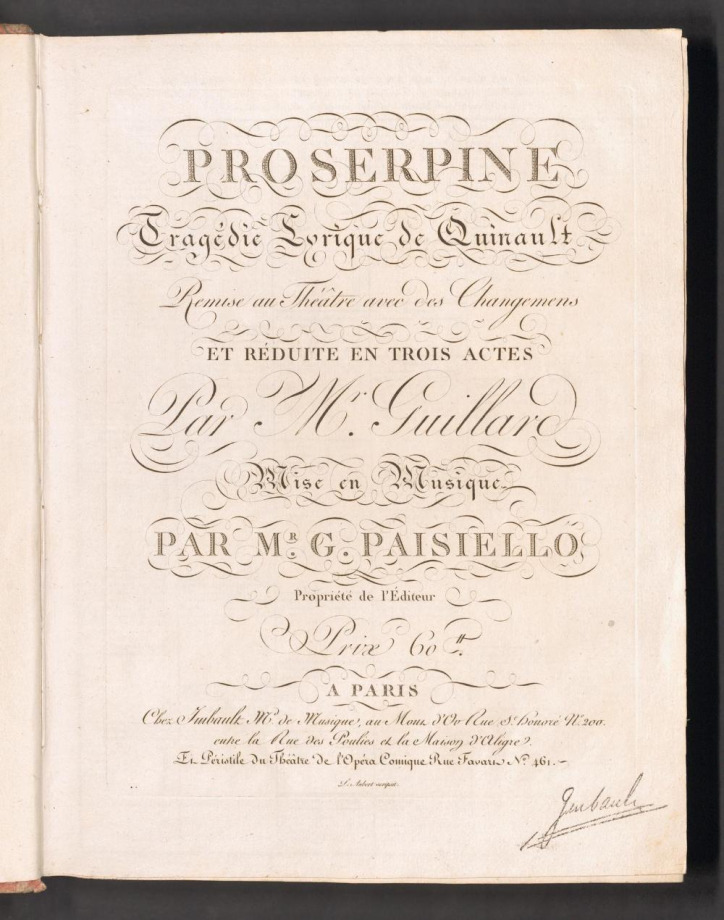 PROSERPINE
Tragédie Lyrique de Quinault
Remise au Théâtre avec des Changemens
ET RÉDUITE EN TROIS ACTES
Par Mr. Guillard
Mise en Musique
PAR MR. G. PAISIELLO
Propriété de l'Éditeur
Prix 60 ₶.
A PARIS
Chez Imbault Md. de Musique, au Mont d'Or Rue St. Honoré No. 200.
entre la Rue des Poulies et la Maison d'Aligre.
Et Péristile du Théâtre de l'Opéra Comique Rue Favart No. 461.
Imbault